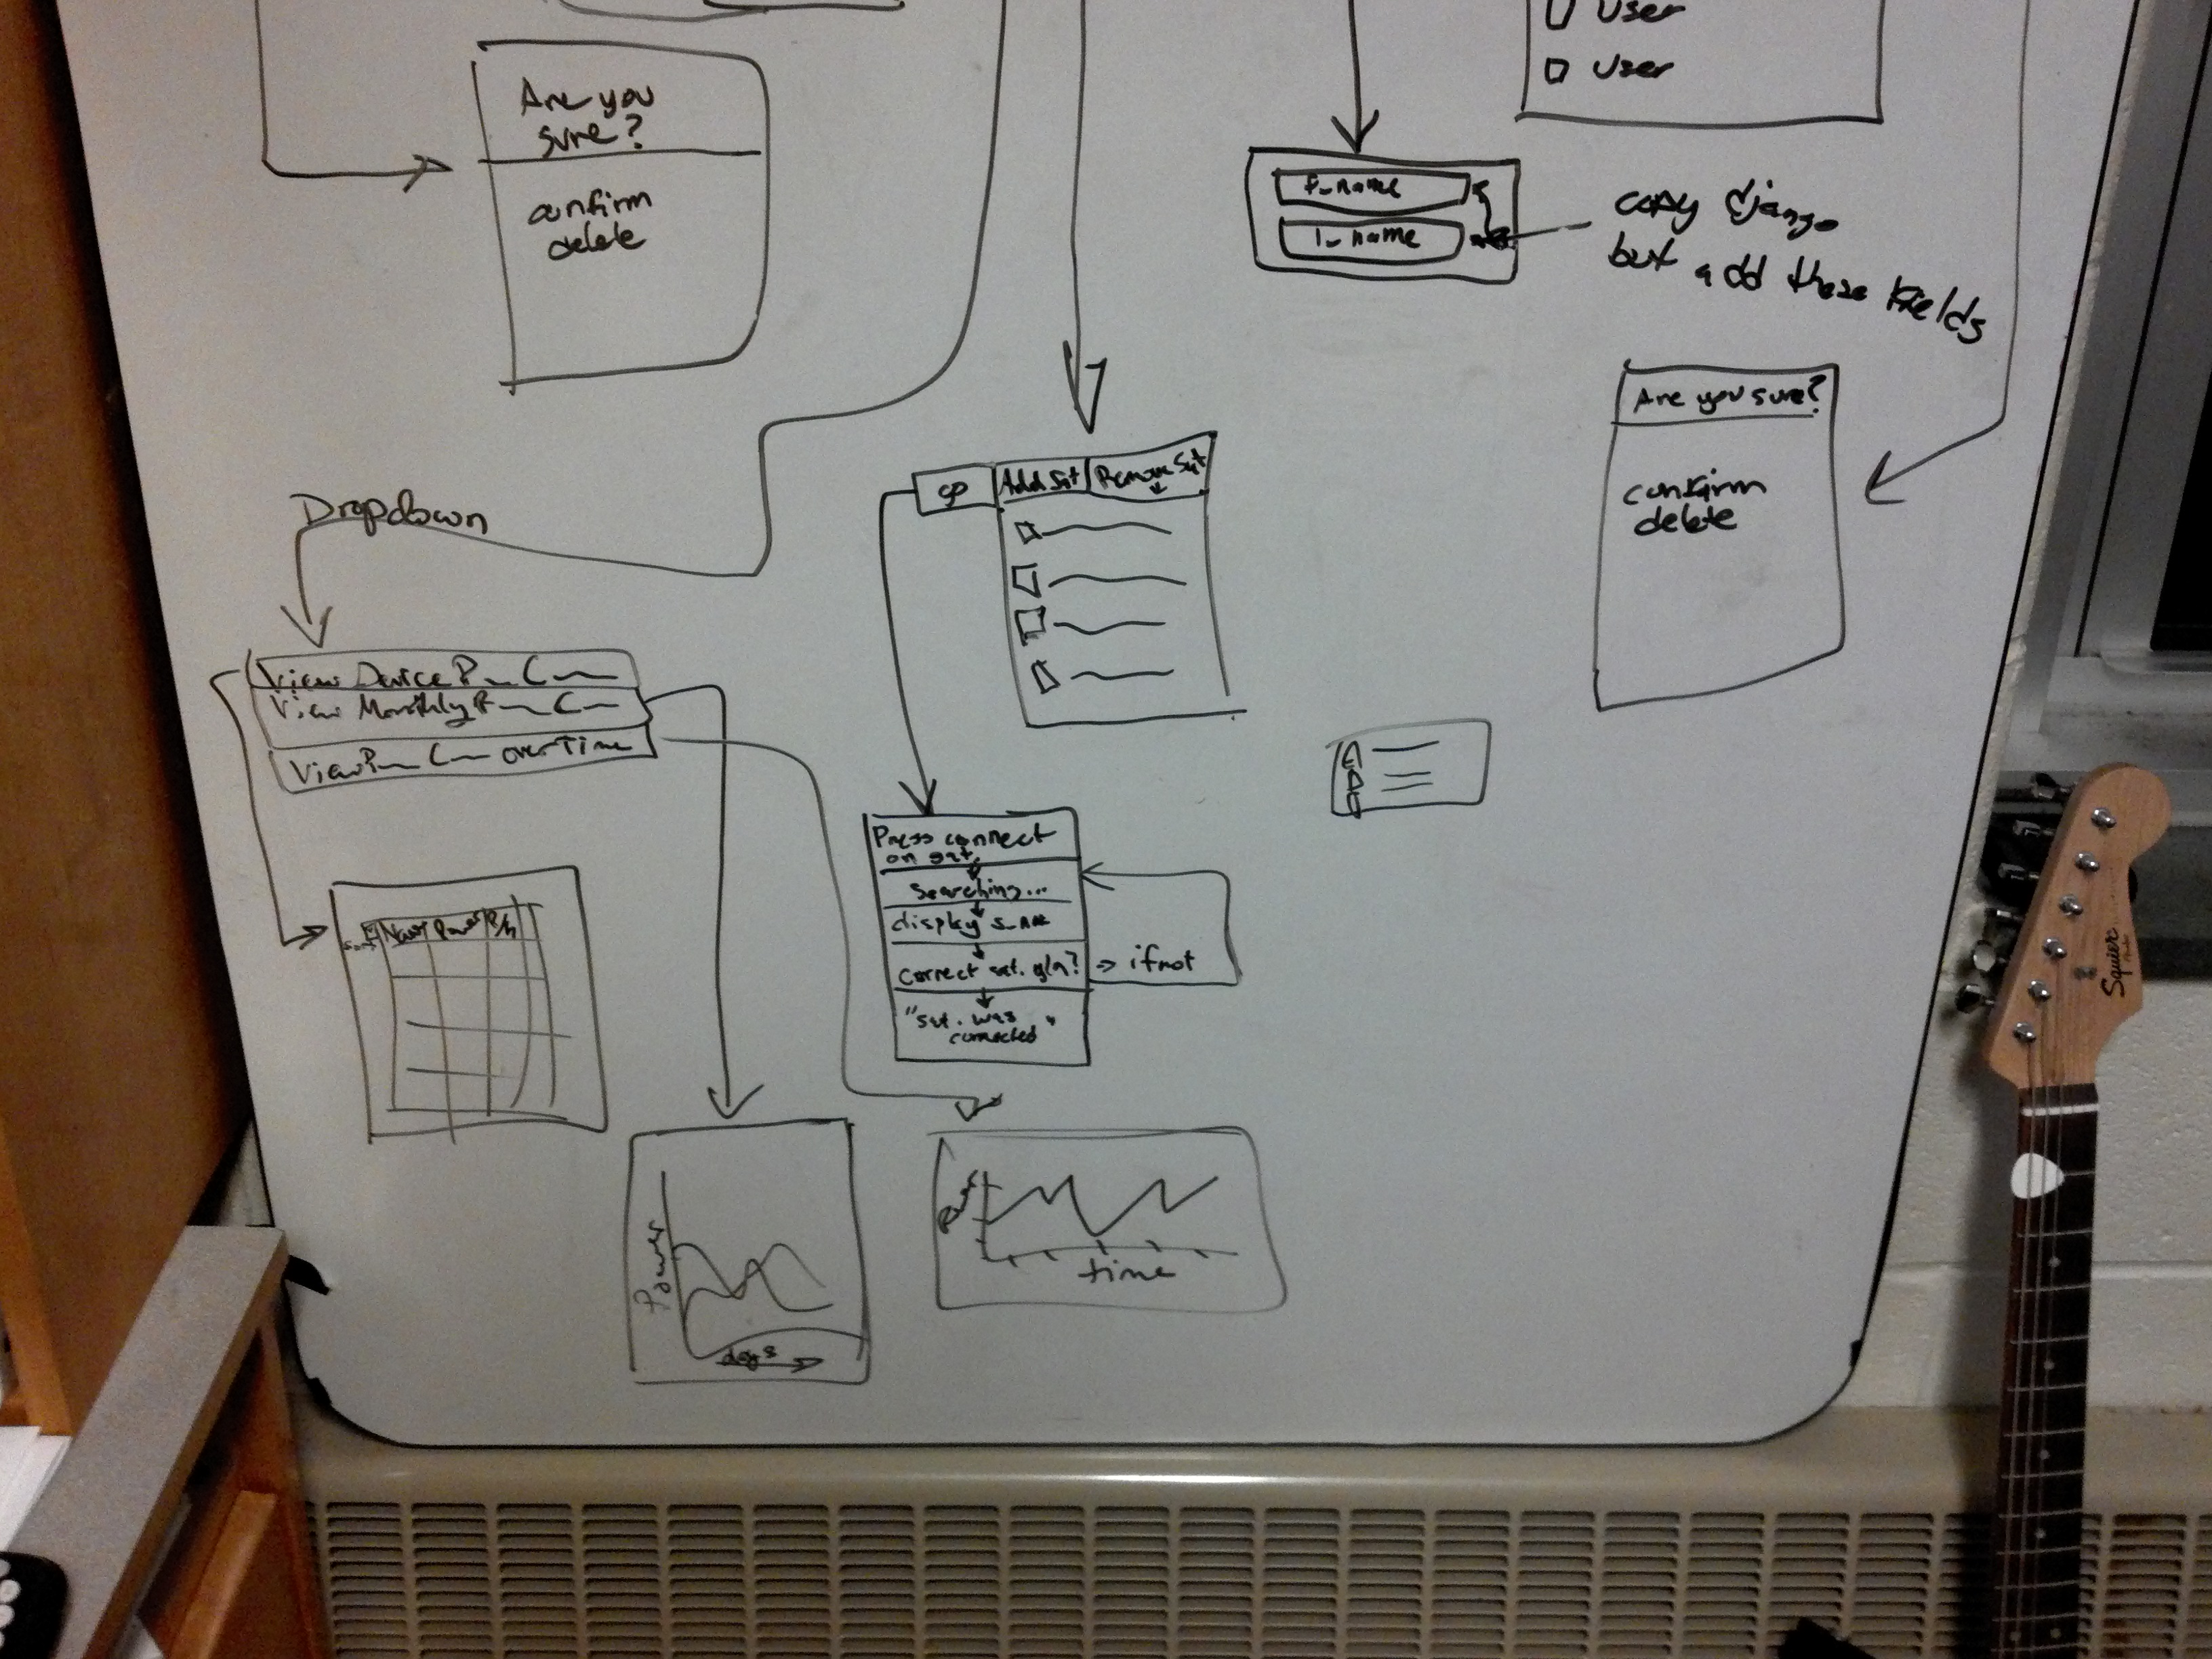 User
User
Are you
sure?
confirm
delete
f_name
l_name
copy django
but add these fields
Are you sure?
confirm
delete
Add Sat
Remove Sat
Dropdown
View Device P C
View Monthly P C
View P C over Time
Press connect
on sat.
Searching...
display s_
correct sat. y/n?
→ if not
"sat. was
connected"
Power
Power
days
time
Squier